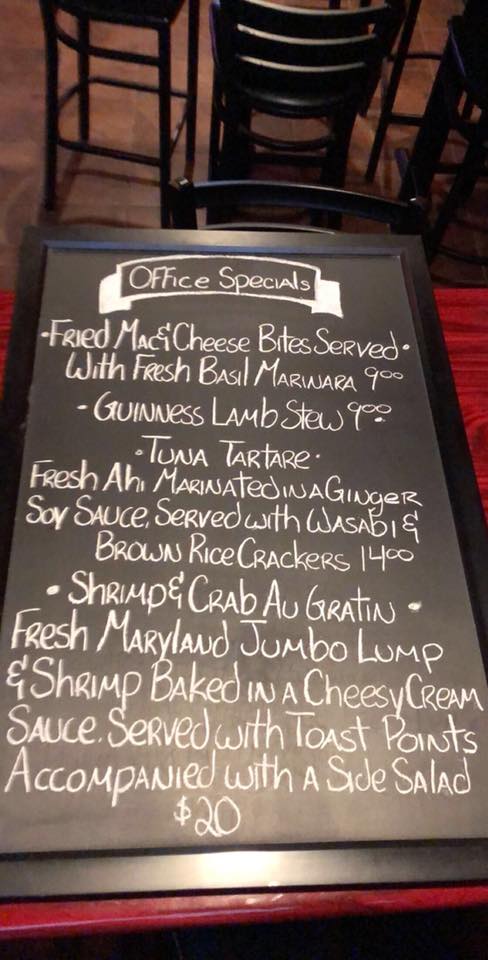 Office Specials
·Fried Mac & Cheese Bites Served·
With Fresh Basil Marinara 9.00
- Guinness Lamb Stew 9.00
·Tuna Tartare·
Fresh Ahi Marinated in a Ginger
Soy Sauce, Served with Wasabi &
Brown Rice Crackers 14.00
· Shrimp & Crab Au Gratin ·
Fresh Maryland Jumbo Lump
& Shrimp Baked in a Cheesy Cream
Sauce. Served with Toast Points
Accompanied with a Side Salad
$20